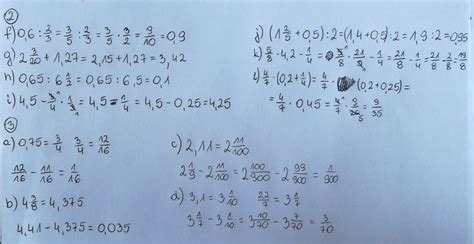 ②
f) 0,6 : 2/3 = 3/5 : 2/3 = 3/5 · 3/2 = 9/10 = 0,9
g) 2 3/20 + 1,27 = 2,15 + 1,27 = 3,42
h) 0,65 : 6 1/2 = 0,65 : 6,5 = 0,1
i) 4,5 - 3/4 · 1/3 = 4,5 - 1/4 = 4,5 - 0,25 = 4,25
j) (1 2/5 + 0,5) : 2 = (1,4 + 0,5) : 2 = 1,9 : 2 = 0,95
k) 5/8 · 4,2 - 1/4 = 21/8 - 1/4 = 21/8 - 2/8 = 19/8
4/7 · (0,2 + 1/4) = 4/7 · (0,2 + 0,25) =
= 4/7 · 0,45 = 9/35
③
a) 0,75 = 3/4 3/4 = 12/16
12/16 - 11/16 = 1/16
b) 4 3/8 = 4,375
4,41 - 4,375 = 0,035
c) 2,11 = 2 11/100
2 1/9 - 2 11/100 = 2 100/900 - 2 99/900 = 1/900
d) 3,1 = 3 1/10 22/7 = 3 1/7
3 1/7 - 3 1/10 = 3 10/70 - 3 7/70 = 3/70